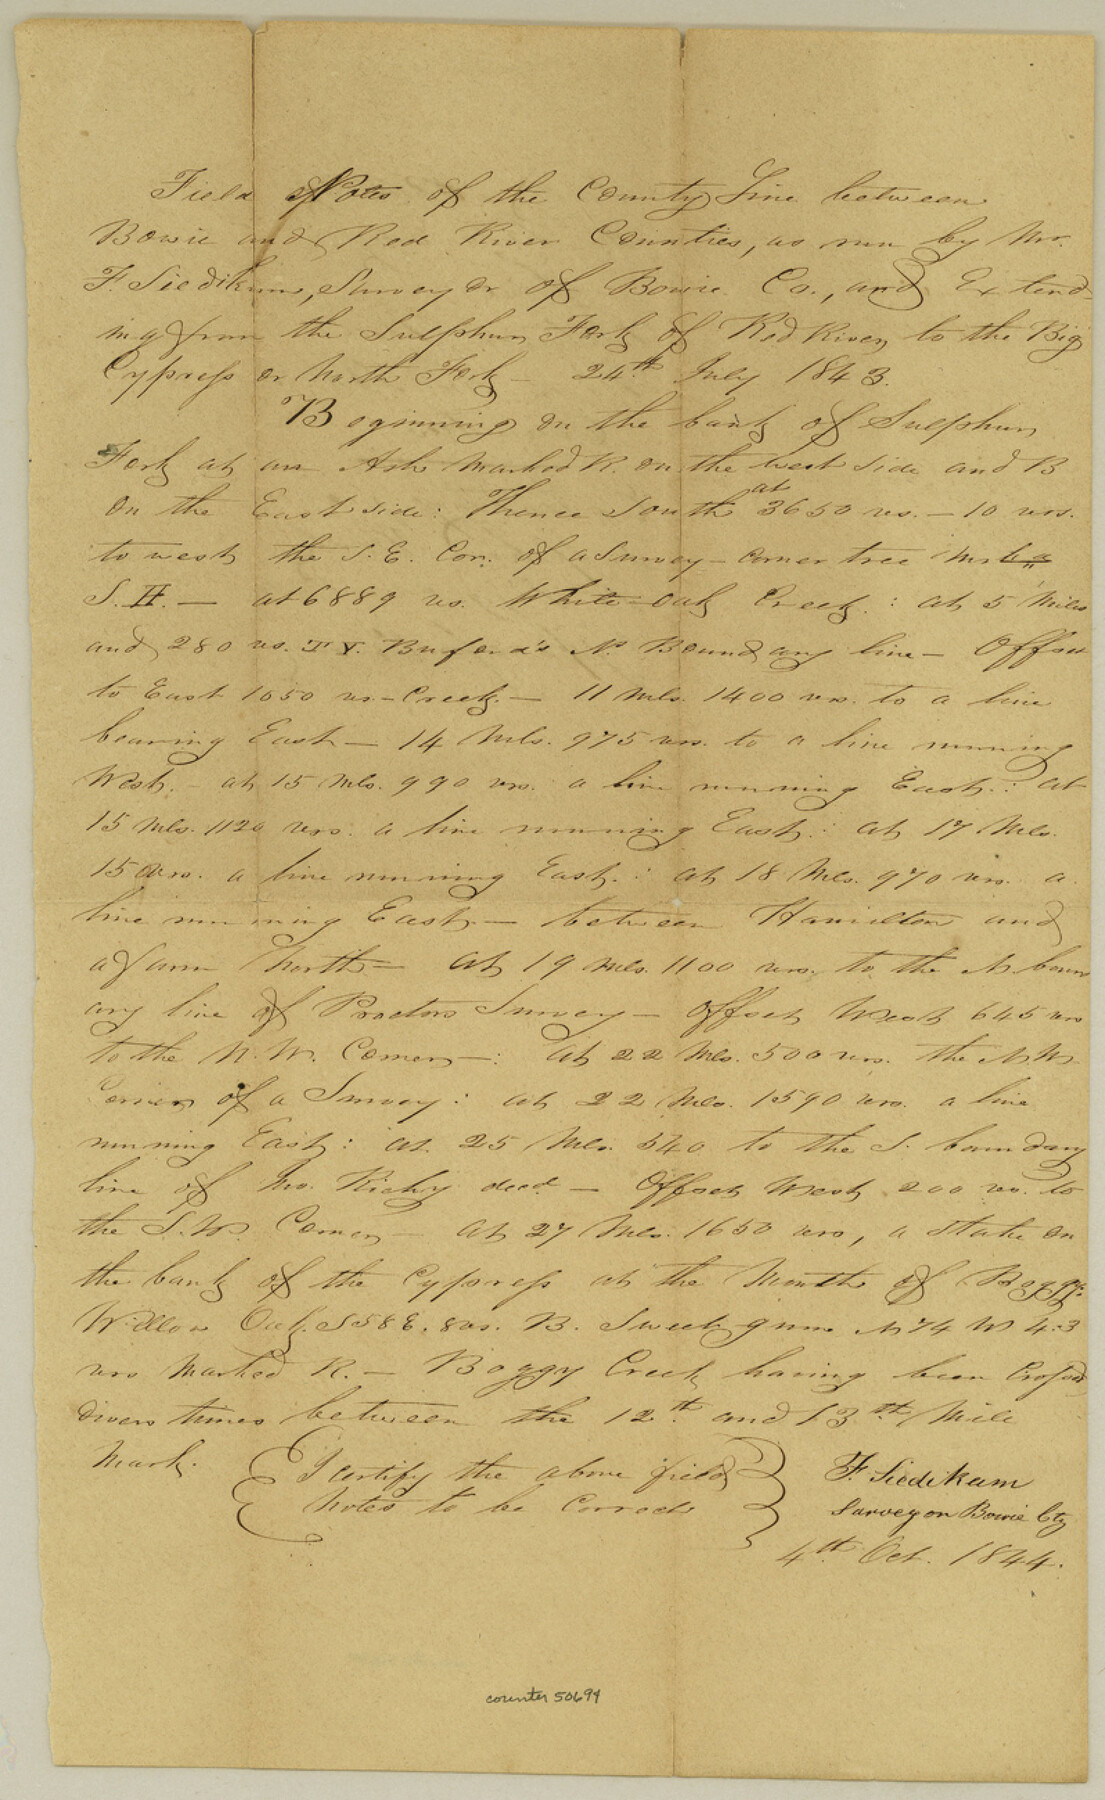 Field Notes of the County Line between
Bowie and Red River Counties, as run by Mr.
F. Siedikum, Surveyor of Bowie Co., and Extend-
ing from the Sulphur Fork of Red River to the Big
Cypress or North Fork — 24th July 1843.
Beginning on the bank of Sulphur
Fork at an Ash marked R. on the west side and B
on the East side: Thence South at 3650 vs. — 10 vrs.
to west the S. E. Cor. of a Survey — corner tree
S. H. — at 6889 vs. White-Oak Creek: at 5 Miles
and 280 vs. Buford's N. Boundary line — Offset
to East 1050 vs — Creek — 11 mls. 1400 vrs. to a line
bearing East — 14 Mls. 975 vrs. to a line running
West. — at 15 Mls. 990 vrs. a line running East: at
15 Mls. 1120 vrs. a line running East: at 17 Mls.
150 vrs. a line running East: at 18 Mls. 970 vrs. a
line running East — between Hamilton and
a farm North — at 19 mls. 1100 vrs. to the N. boun
ary line of Proctors Survey — offset West 645 vrs
to the N. W. Corner —: at 22 Mls. 500 vrs. the N. W.
Corner of a Survey: at 22 Mls. 1590 vrs. a line
running East: at 25 Mls. 540 to the S. boundary
line of Richy decd — Offset West 200 vs. to
the S. W. Corner — at 27 Mls. 1650 vrs, a stake on
the bank of the Cypress at the Mouth of Boggy.
Willow Oak S 58 E. 8 vs. B. Sweet gum N 74 W 4.3
vrs marked R. — Boggy Creek having been Crossed
divers times between the 12th and 13th Mile
Mark.
I certify the above field
Notes to be Correct
F. Siedikum
Surveyor Bowie Cty
4th Oct. 1844.
counter 50694